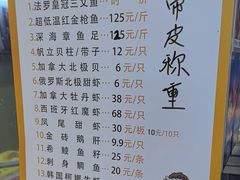 1.法罗皇冠三文鱼 时 价
2.超低温红金枪鱼 125元/斤
3.深海章鱼足 25元/斤
4.帆立贝柱/带子 12元/只
5.加拿大北极贝 6元/只
6.俄罗斯北极甜虾 6元/只
7.加拿大牡丹虾 38元/只
8.西班牙红魔虾 68元/只
9.凤尾甜虾 30元/板 10元/10只
10.金砖鹅肝 9.9元/只
11.希鲮鱼籽 25元/条
12.刺身鲷鱼 20元/条
13.韩国
带皮称重